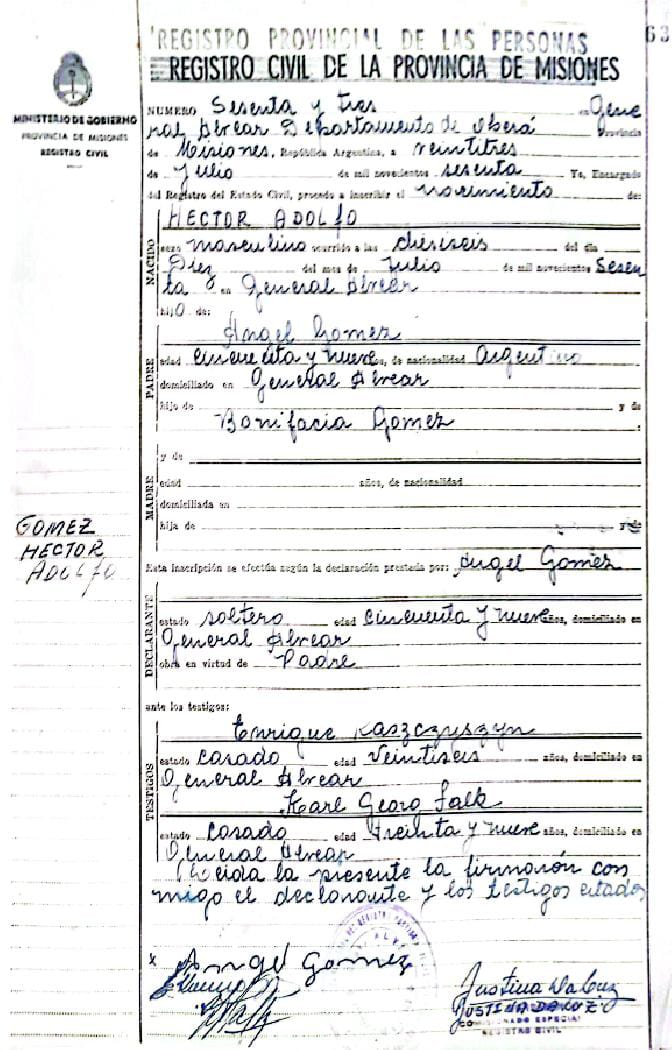 63
REGISTRO PROVINCIAL DE LAS PERSONAS
REGISTRO CIVIL DE LA PROVINCIA DE MISIONES
MINISTERIO DE GOBIERNO
PROVINCIA DE MISIONES
REGISTRO CIVIL
NUMERO Sesenta y tres en Gene
ral Alvear Departamento de Oberá Provincia
de Misiones, República Argentina, a veintitres
de Julio de mil novecientos sesenta Yo, Encargado
del Registro del Estado Civil, procedo a inscribir el nacimiento de:
NACIDO
HECTOR ADOLFO
sexo masculino ocurrido a las dieciseis del día
Diez del mes de Julio de mil novecientos Sesen
ta en General Alvear
hijo de:
PADRE
Angel Gomez
edad cincuenta y nueve años, de nacionalidad Argentino
domiciliado en General Alvear
hijo de y de
Bonifacia Gomez
MADRE
y de
edad años, de nacionalidad
domiciliada en
hija de y de
GOMEZ
HECTOR
ADOLFO
Esta inscripción se efectúa según la declaración prestada por: Angel Gomez
DECLARANTE
estado soltero edad cincuenta y nueve años, domiciliado en
General Alvear
obra en virtud de Padre
ante los testigos:
TESTIGOS
Enrique Kaszczyszyn
estado casado edad Veintiseis años, domiciliado en
General Alvear
Karl Georg Falk
estado casado edad treinta y nueve años, domiciliado en
General Alvear
Leida la presente la firmarón con
migo el declarante y los testigos citados
x Angel Gomez
Justina Da Luz
JUSTINA DA LUZ
COMISIONADO ESPECIAL
REGISTRO CIVIL